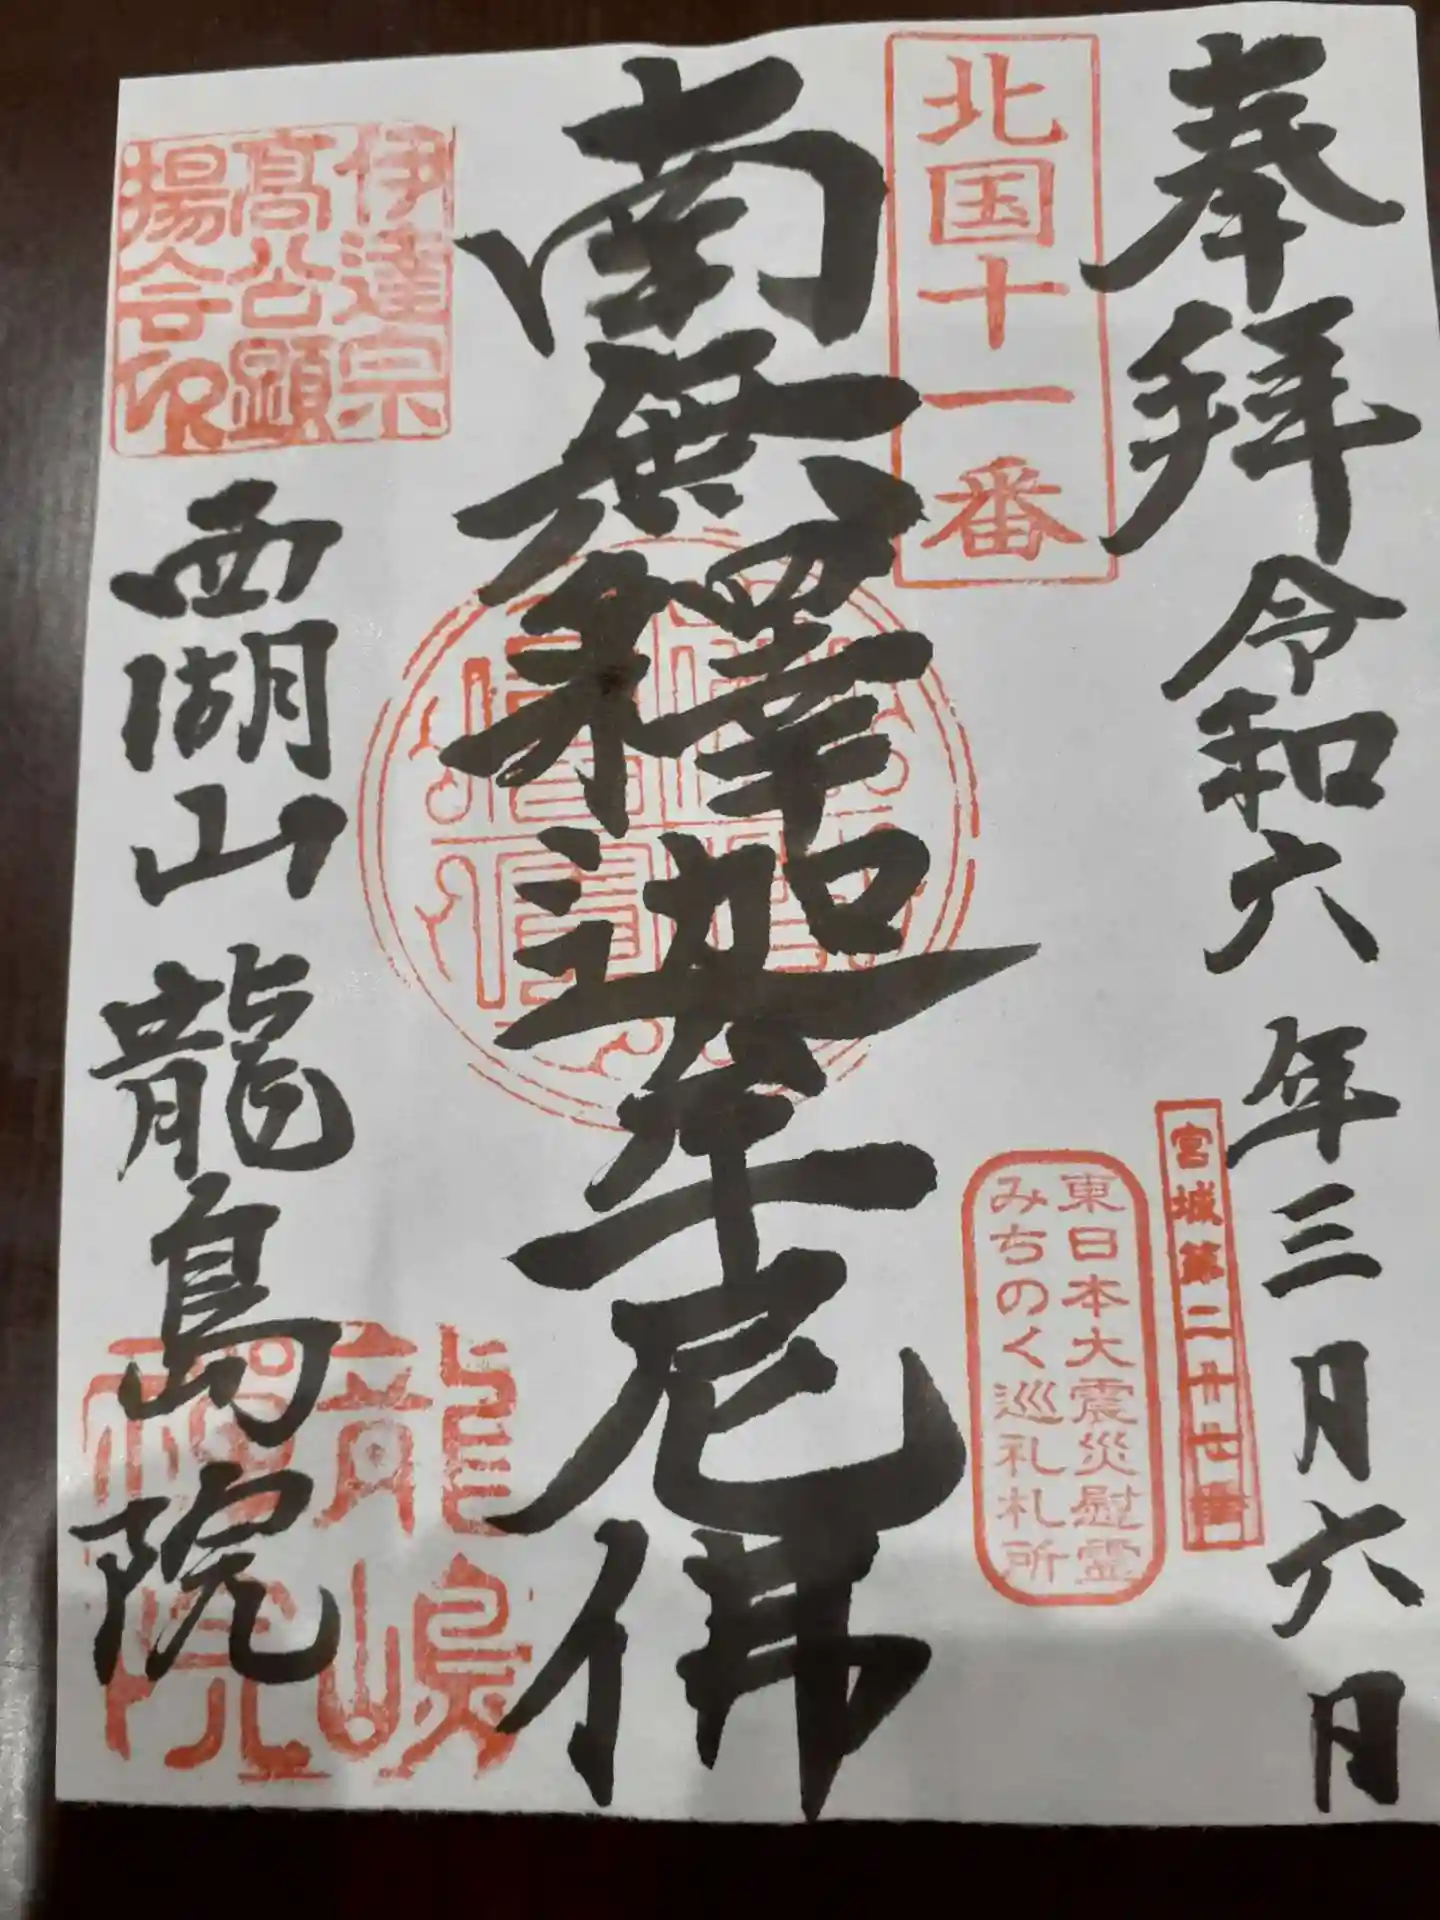 奉拝 令和六年三月六日
宮城第二十七番
北国十一番
東日本大震災慰霊
みちのく巡礼札所
南無釋迦牟尼佛
伊達宗
高公顕
揚会印
西湖山 龍島院
龍嶋
禅院